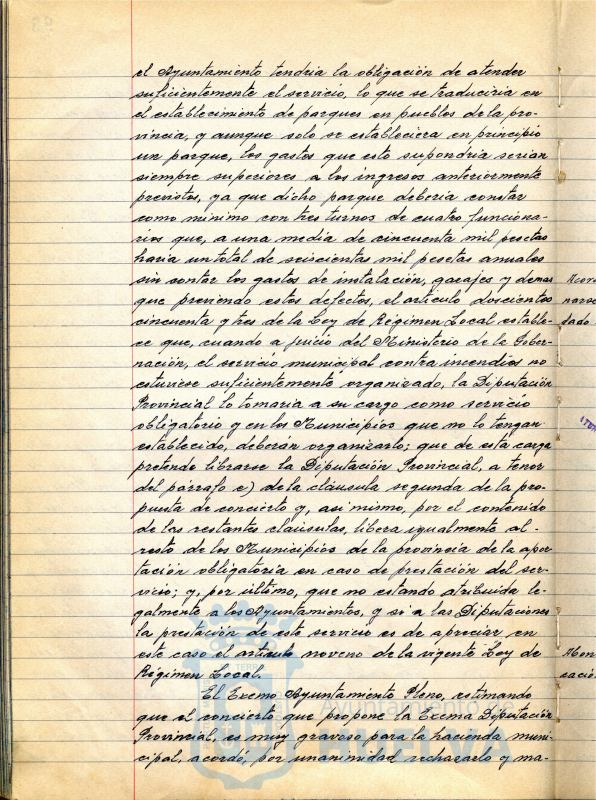 el Ayuntamiento tendria la obligación de atender
suficientemente el servicio, lo que se traduciria en
el establecimiento de parques en pueblos de la pro-
vincia, y aunque solo se estableciera en principio
un parque, los gastos que esto supondria serian
siempre superiores a los ingresos anteriormente
previstos, ya que dicho parque deberia constar
como minimo con tres turnos de cuatro funciona-
rios que, a una media de cincuenta mil pesetas
haria un total de seiscientas mil pesetas anuales
sin contar los gastos de instalación, garajes y demas
que previendo estos defectos, el articulo doscientos
cincuenta y tres de la Ley de Régimen Local estable-
ce que, cuando a juicio del Ministerio de la Gober-
nación, el servicio municipal contra incendios no
estuviese suficientemente organizado, la Diputación
Provincial lo tomaria a su cargo como servicio
obligatorio y en los Municipios que no lo tengan
establecido, deberán organizarlo; que de esta carga
pretende librarse la Diputación Provincial, a tenor
del párrafo c) de la cláusula segunda de la pro-
puesta de concierto y, asi mismo, por el contenido
de las restantes cláusulas, libera igualmente al
resto de los Municipios de la provincia de la apor-
tación obligatoria en caso de prestación del ser-
vicio; y, por último, que no estando atribuida le-
galmente a los Ayuntamientos, y si a las Diputaciones
la prestación de este servicio es de apreciar en
este caso el articulo noveno de la vigente Ley de
Régimen Local.
El Excmo Ayuntamiento Pleno, estimando
que el concierto que propone la Excma Diputación
Provincial, es muy gravoso para la hacienda muni-
cipal, acordó, por unanimidad rechazarlo y ma-
Ayuntamiento de
HUELVA